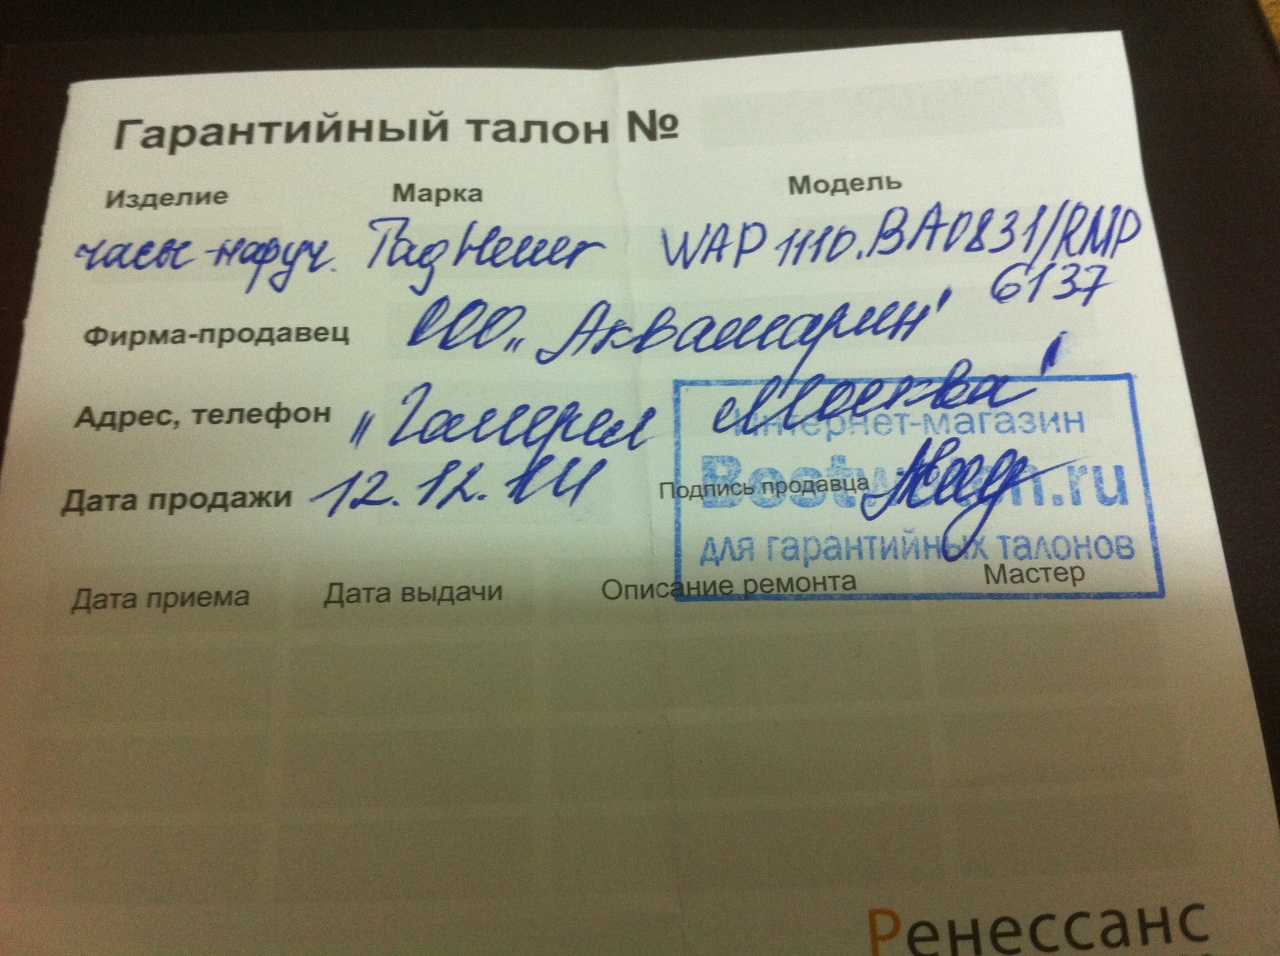 Гарантийный талон №
Изделие Марка Модель
часы наруч. Tag Heuer WAP 1110.BA0831/RMP
6137
Фирма-продавец ООО „Аквамарин"
Адрес, телефон „Галерея Москва"
Интернет-магазин
Дата продажи 12.12.14 Подпись продавца
Bestwatch.ru
для гарантийных талонов
Дата приема Дата выдачи Описание ремонта Мастер
Ренессанс